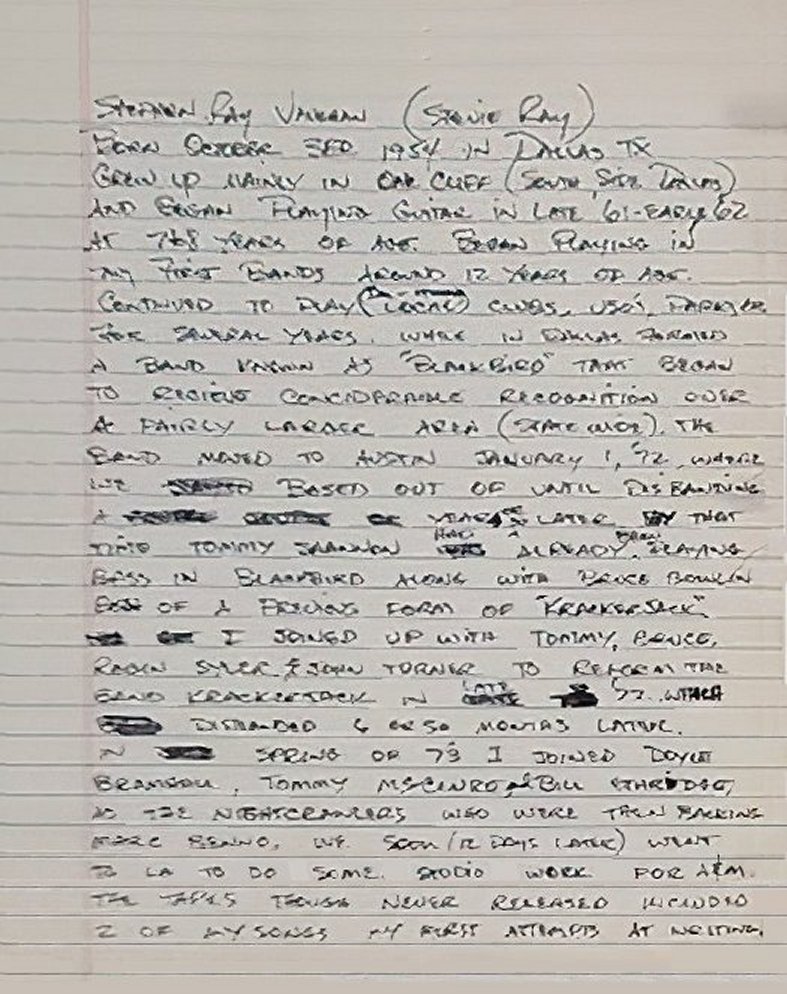 STEPHEN RAY VAUGHAN (STEVIE RAY)
BORN OCTOBER 3RD 1954 IN DALLAS TX
GREW UP MAINLY IN OAK CLIFF (SOUTH SIDE DALLAS)
AND BEGAN PLAYING GUITAR IN LATE '61-EARLY '62
AT 7 OR 8 YEARS OF AGE. BEGAN PLAYING IN
MY FIRST BANDS AROUND 12 YEARS OF AGE.
CONTINUED TO PLAY (LOCAL) CLUBS, USO'S,
FOR SEVERAL YEARS. WHILE IN DALLAS FORMED
A BAND KNOWN AS "BLACKBIRD" THAT BEGAN
TO RECIEVE CONCIDERABLE RECOGNITION OVER
A FAIRLY LARGER AREA (STATE WIDE). THE
BAND MOVED TO AUSTIN JANUARY 1, '72, WHERE
WE BASED OUT OF UNTIL DISBANDING
A YEAR LATER. BY THAT
TIME TOMMY SHANNON HAD ALREADY BEEN PLAYING
BASS IN BLACKBIRD ALONG WITH BRUCE BOWLIN
OF A PREVIOUS FORM OF "KRACKERJACK".
I JOINED UP WITH TOMMY, BRUCE,
ROBIN SYLER & JOHN TURNER TO REFORM THE
BAND KRACKERJACK IN LATE '72. WHICH
DISBANDED 6 OR SO MONTHS LATER.
IN SPRING OF 73 I JOINED DOYLE
BRAMHALL, TOMMY MCCLURE, & BILL ETHRIDGE,
AS THE NIGHTCRAWLERS WHO WERE THEN BACKING
MARC BENNO. WE SOON (12 DAYS LATER) WENT
TO LA TO DO SOME STUDIO WORK FOR A&M.
THE TAPES THOUGH NEVER RELEASED INCLUDED
2 OF MY SONGS MY FIRST ATTEMPTS AT WRITING.